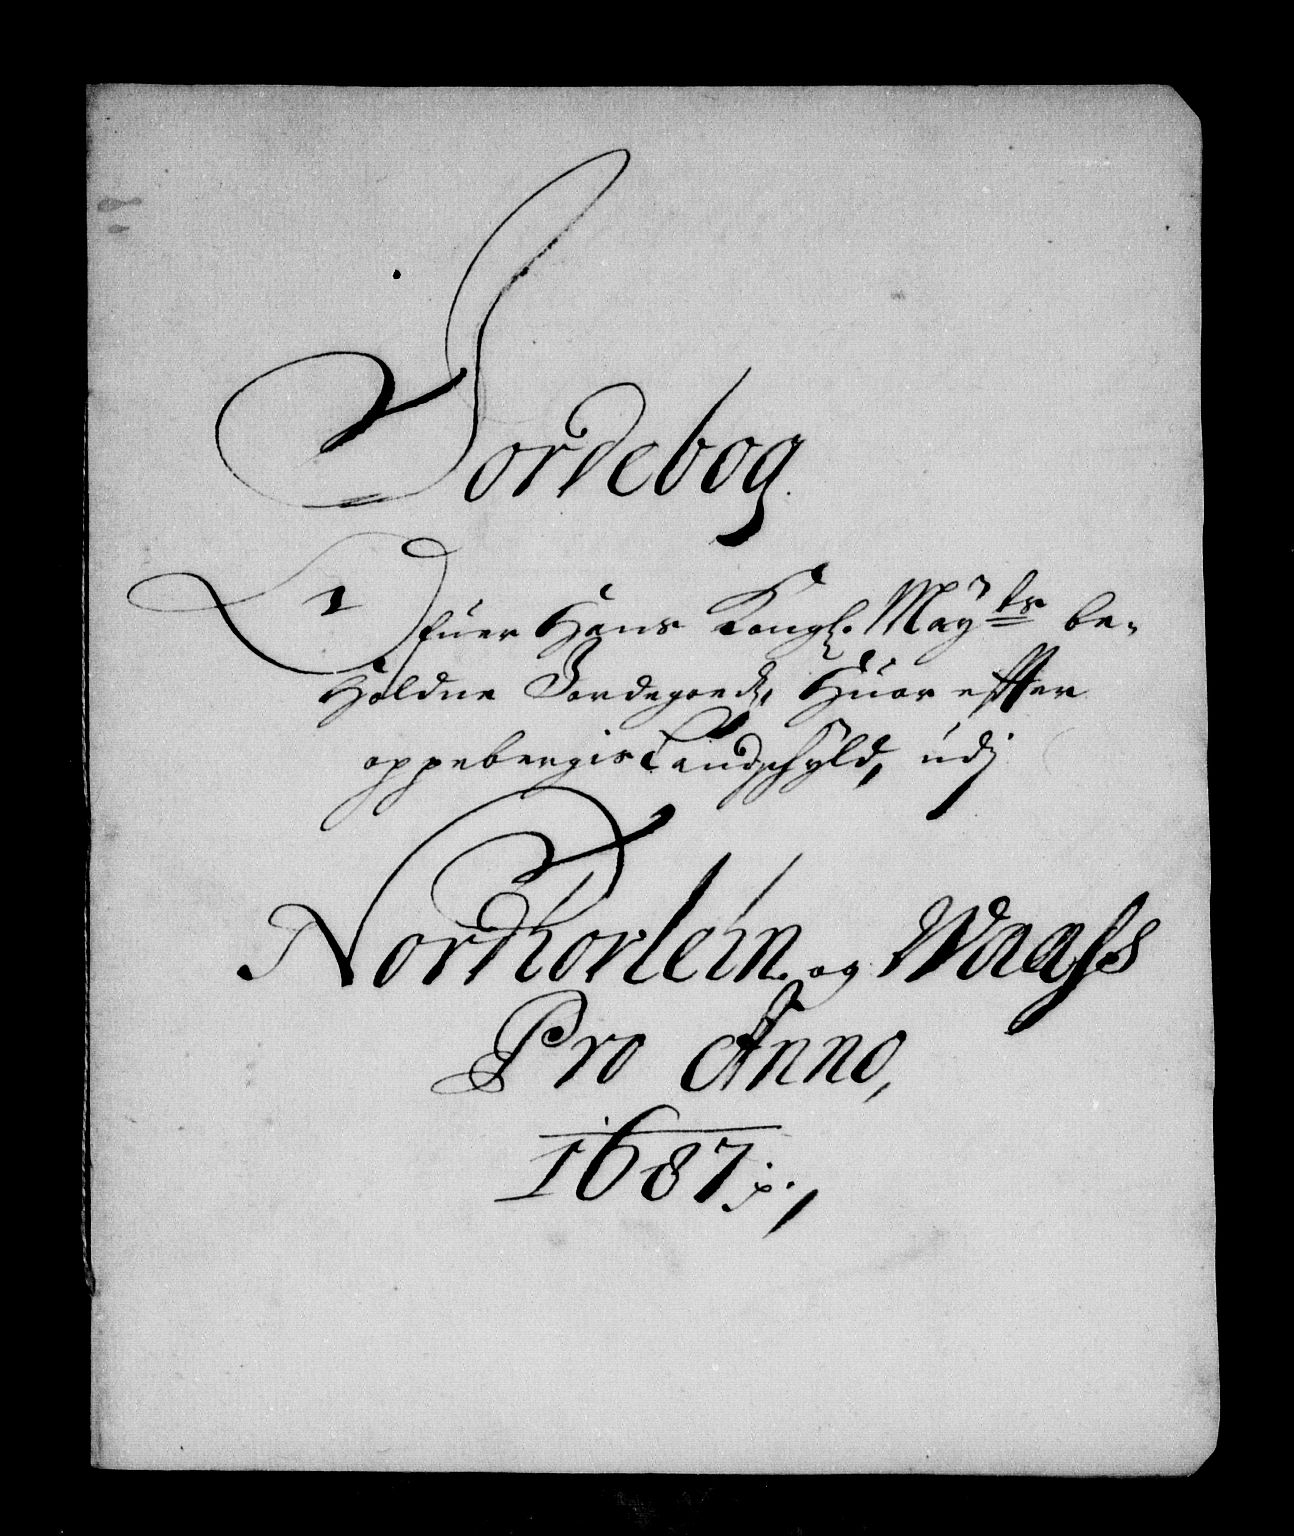 Jordebog
Ofuer Hans Kongl. Mayts be-
Holdne Jordegoeds, Huor effter
oppebergis Landschyld, udj
Nordhorlehn og Waass
Pro Anno,
1687